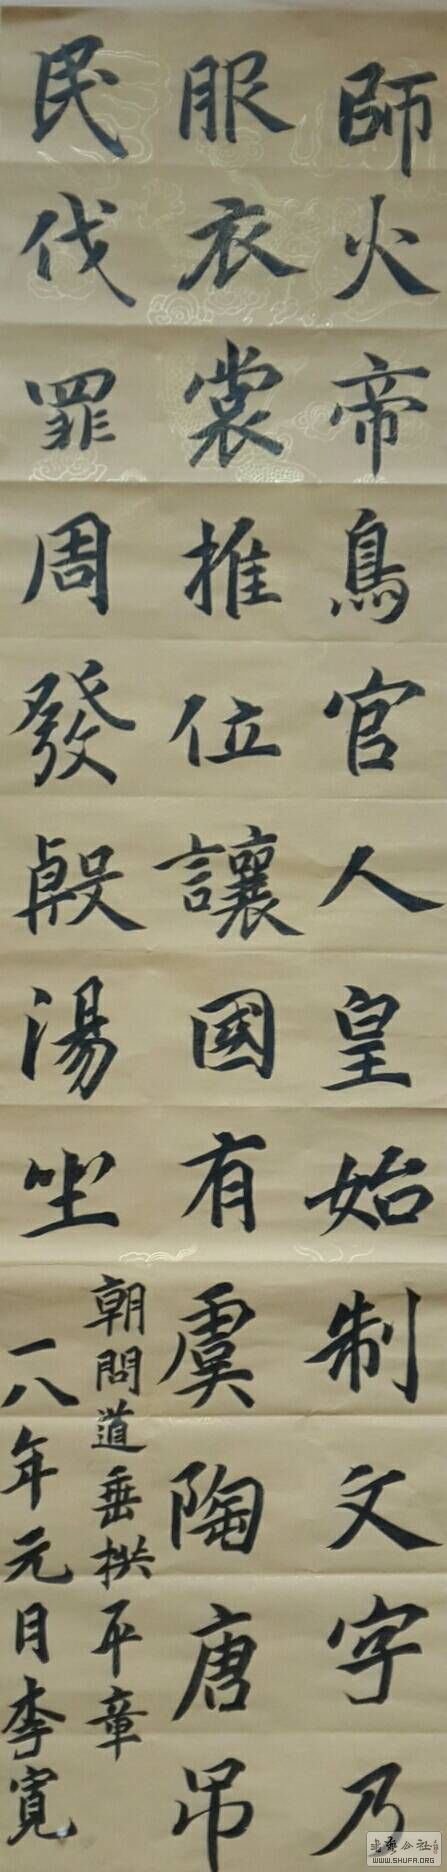 師火帝鳥官人皇始制文字乃
服衣裳推位讓國有虞陶唐吊
民伐罪周發殷湯坐
朝問道垂拱平章
一八年元月李寬
WWW.SHUFA.ORG